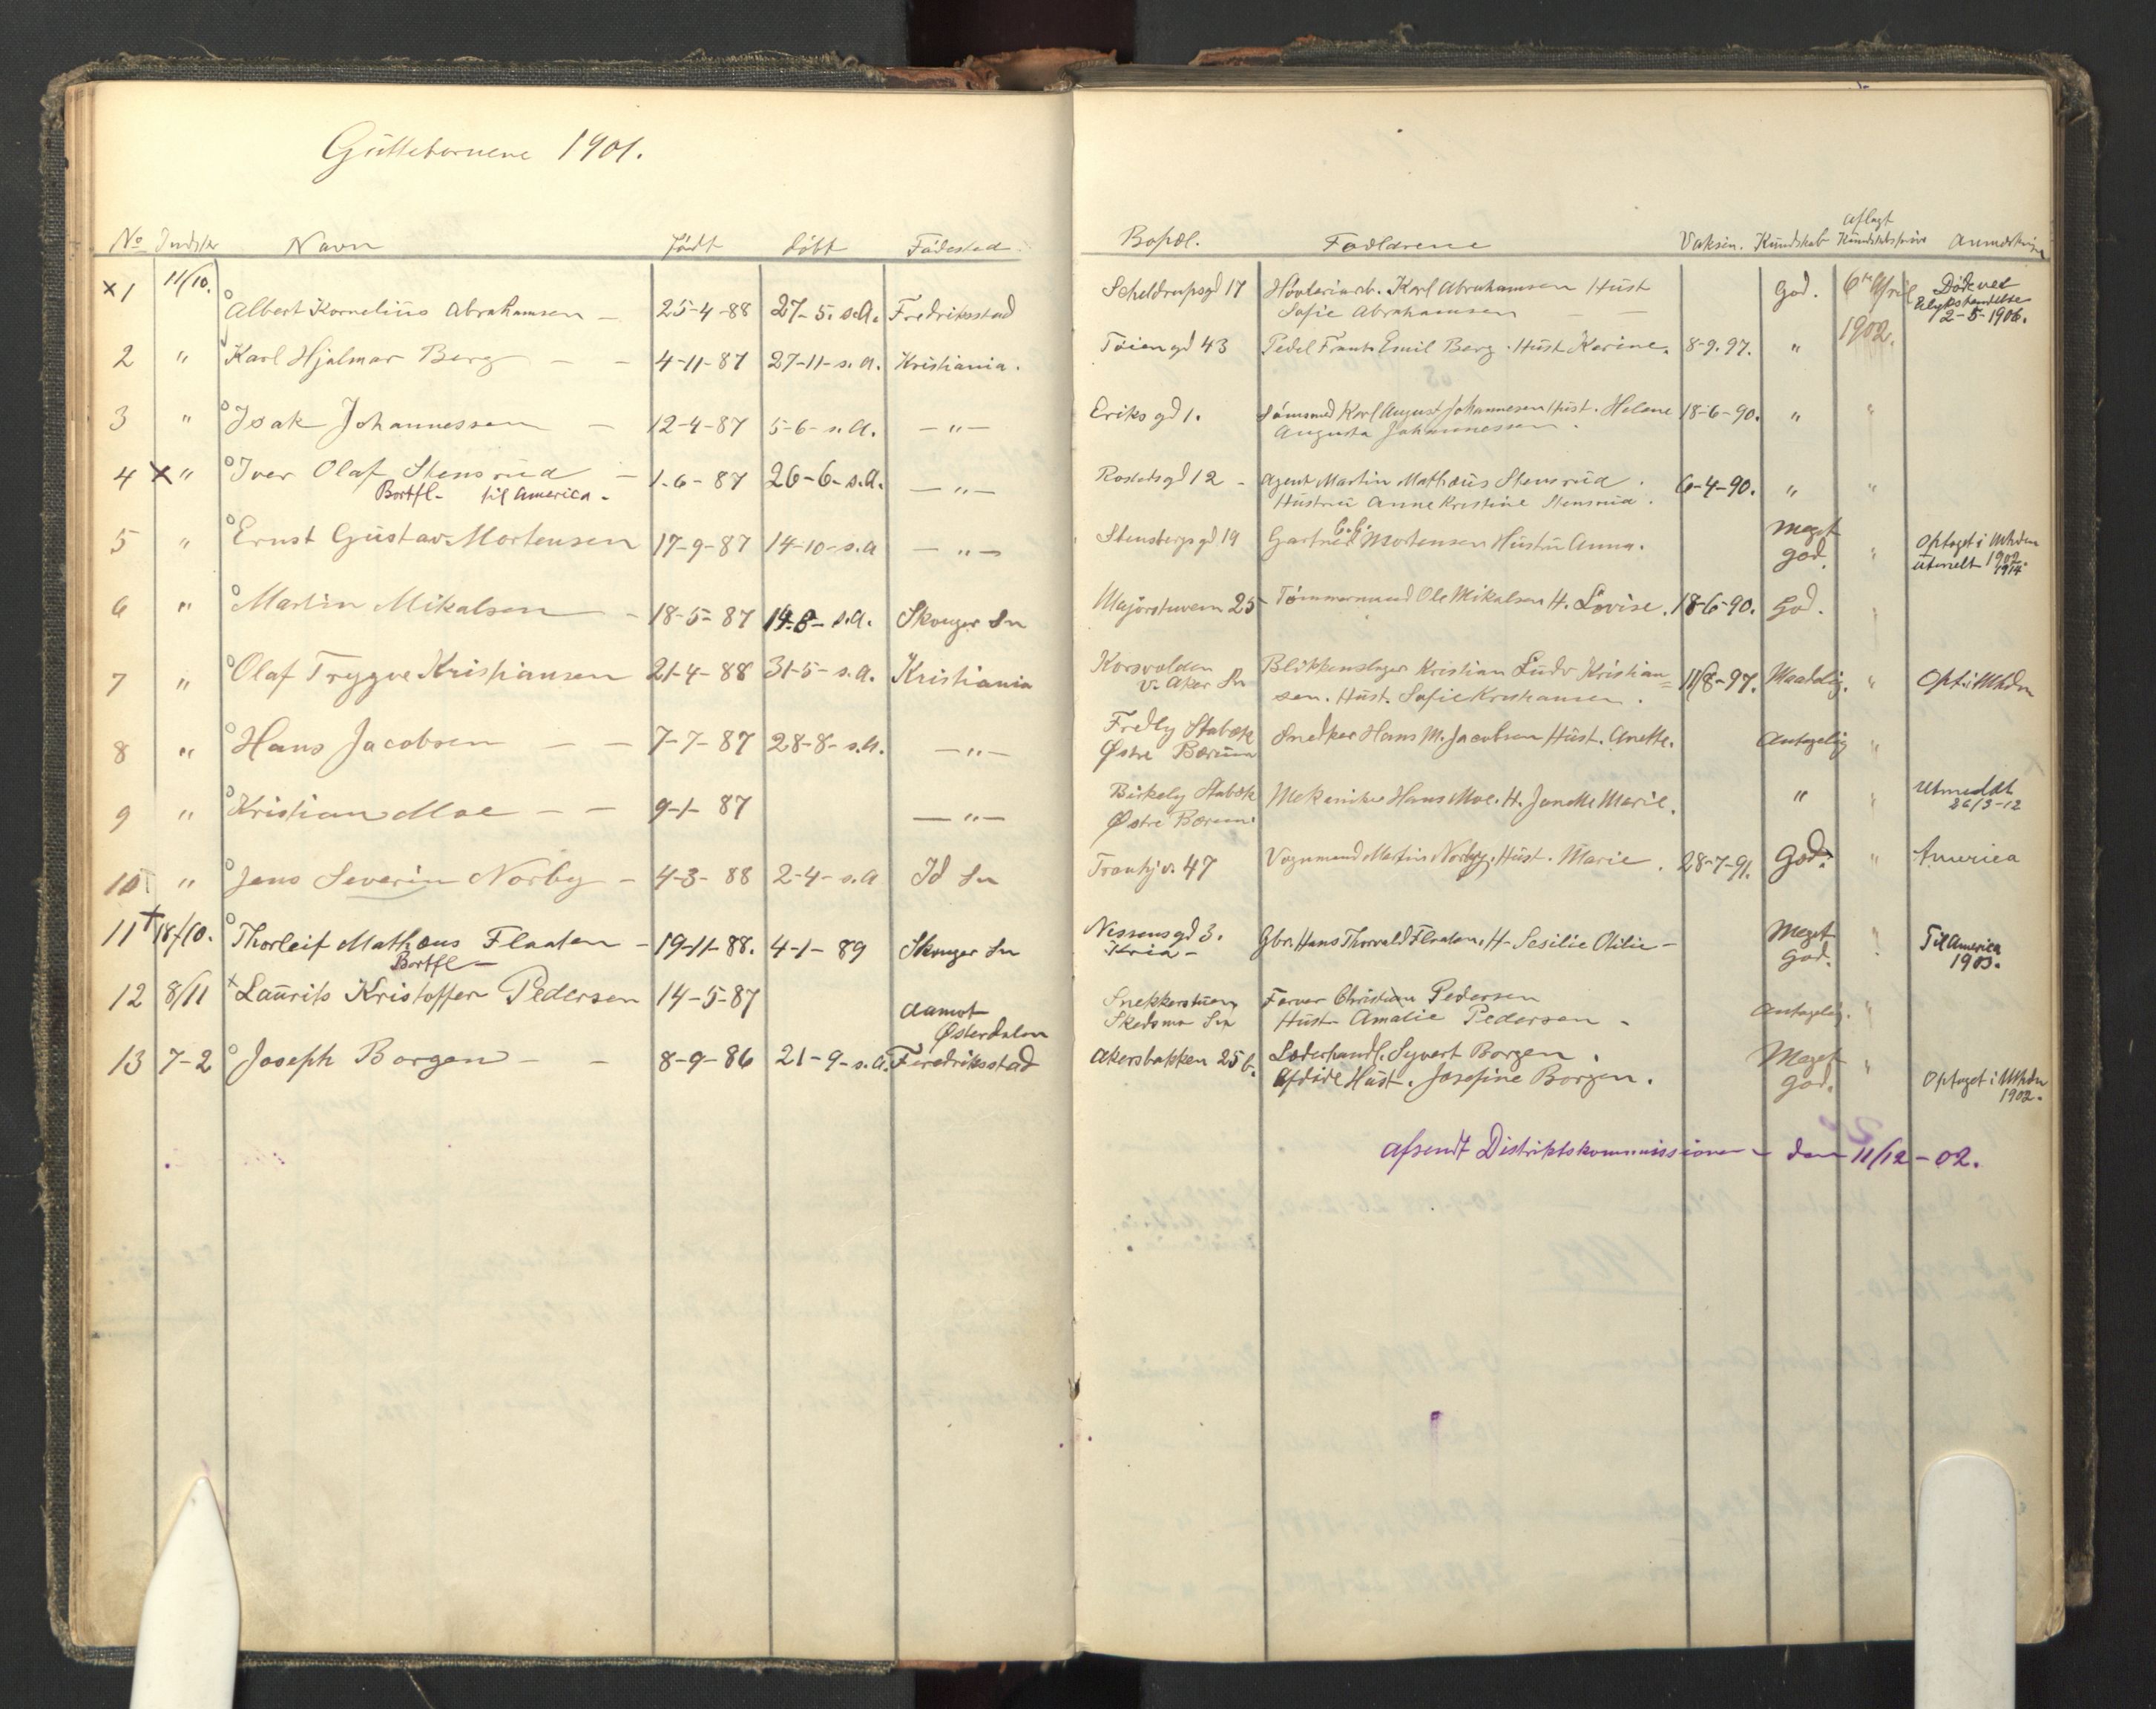 Guttebørnene 1901.
No Indskr Navn Født døbt Fødested
×1 11/10. Albert Kornelius Abrahamsen – 25-4-88 27-5-s.A. Fredriksstad
2 " Karl Hjalmar Berg – – 4-11-87 27-11-s.A. Kristiania.
3 " Isak Johannessen – 12-4-87 5-6-s.A. – " –
4 × " Iver Olaf Stensrud – 1-6-87 26-6-s.A. – " –
Bortfl- til America.
5 " Ernst Gustav Mortensen 17-9-87 14-10-s.A – " –
6 " Martin Mikalsen – 18-5-87 14-8-s.A. Skouger Sn
7 " Olaf Trygve Kristiansen 21-4-88 31-5-s.A. Kristiania
8 " Hans Jacobsen – – 7-7-87 28-8-s.A. – " –
9 " Kristian Moe – – 9-1-87 – " –
10 " Jens Severin Norby – 4-3-88 2-4-s.A Id Sn
11 + 18/10. Thorleif Mathæus Flaaten – 19-11-88. 4-1-89 Skouger Sn
Bortfl –
12 8/11 × Laurits Kristoffer Pedersen 14-5-87 Aamot
Østerdalen
13 7-2 Joseph Borgen – – 8-9-86 21-9-s.A. Fredriksstad
aflagt
Bopæl. Forældrene Vaksin. Kundskab Kundskabsprøve Anmærkning
Scheldrupsgd 17 Høvleriarb. Karl Abrahamsen Hust God. 6te April Døde ved
Sofie Abrahamsen – – Ulykkeshændelse
2-5-1906.
1902.
Tøiengd 43 Pedel Frants Emil Berg. Hust Karine. 8-9.97. "
Eriksgd 1. Karl August Johannesen Hust. Helene 18-6-90. " "
Augusta Johannessen.
Rostedsgd 12 – Agent Martin Mathæus Stensrud. 6-4-90. " "
Hustru Anne Kristine Stensrud.
Stensbergsgd 19 Gartner Mortensen Hustru Anna. Meget
god. " Optaget i Mhdn
utmelt 1902.
1914.
Majorstuvein 25 Tømmermand Ole Mikalsen H. Lovise. 18-6-90. God. "
Korsvolden Blikkenslager Kristian Ludv Kristian= 11/8-97. Maadelig. " Opt. i Mhdn
V. Aker Sn sen. Hust. Sofie Kristiansen.
Fredly Stabæk Snedker Hans M. Jacobsen Hust. Anette. Antagelig "
Østre Bærum
Birkely Stabæk Mekaniker Hans Moe. H. Janette Marie. " " Utmeldt
Østre Bærum 26/3-12
Trondhj v. 47 Vognmand Martin Norby. Hust. Marie. 28-7-91. God. " America
Nissensgd 3. Gbr. Hans Thorvald Flaaten. H- Sesilie Otilie – Meget " Til America
Kria – god. 1903.
Snekkerstuen Farver Christian Pedersen Antagelig. "
Skedsmo Sn Hust- Amalie Pedersen –
Akersbakken 25 b. Læderhandl. Syvert Borgen. Meget "
Afdøde Hust. Josefine Borgen. god. Optaget i Mhdn
1902.
Afsendt Distriktskommissionen den 11/12-02.